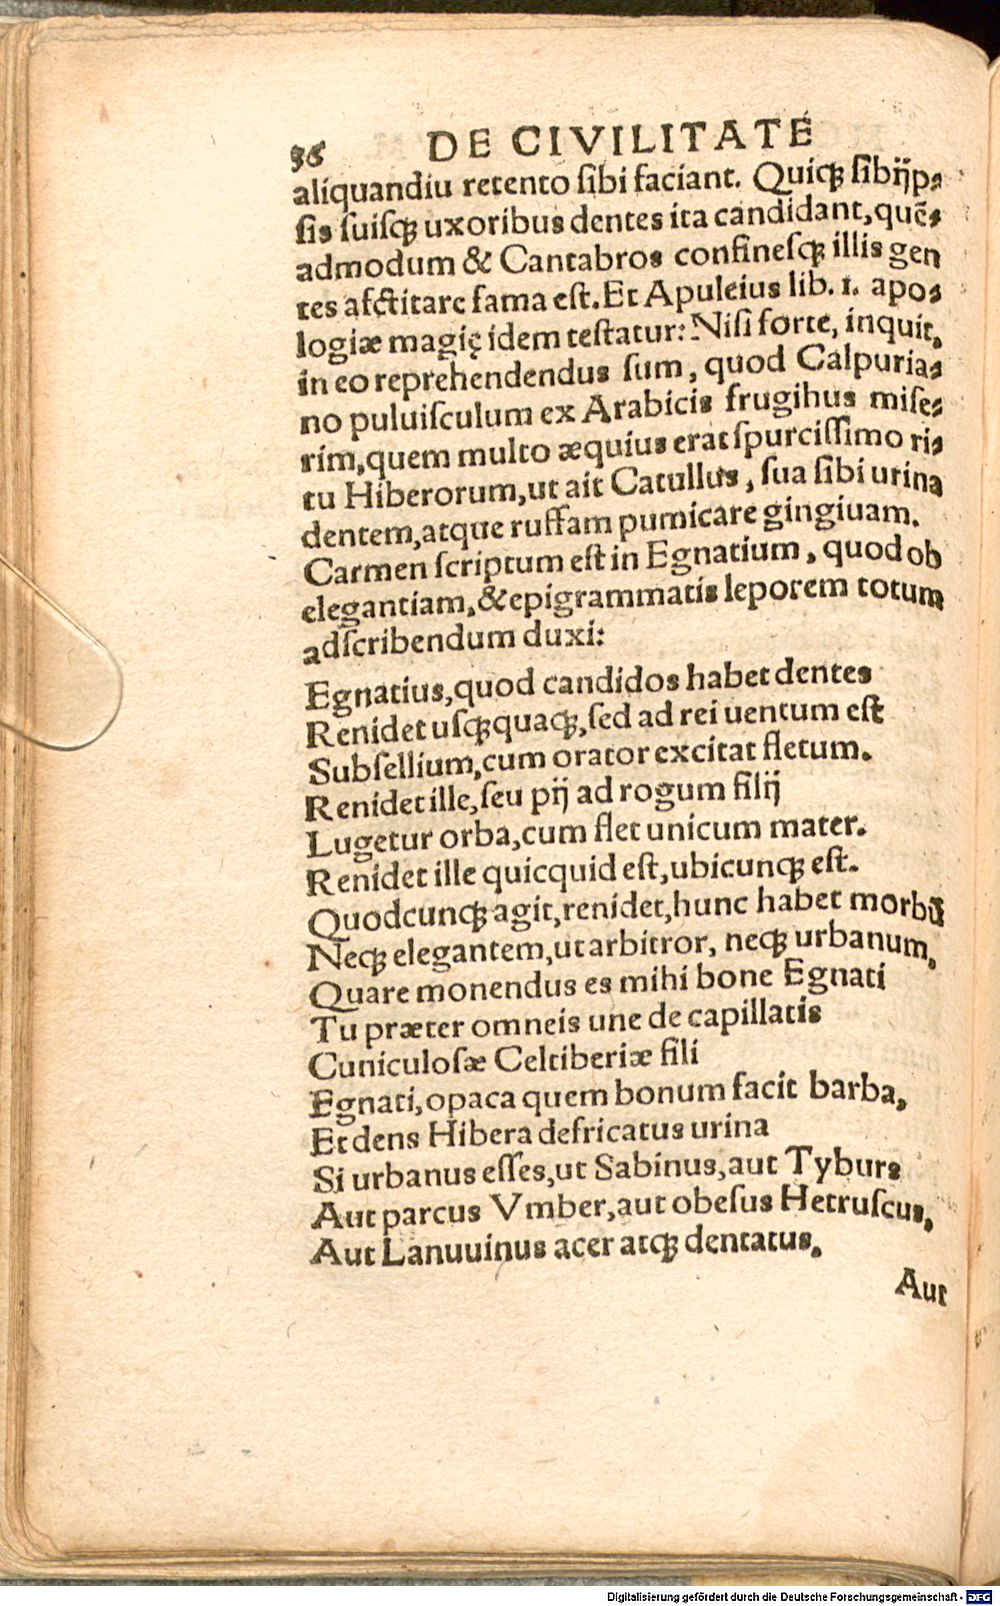 36 DE CIVILITATE
aliquandiu retento sibi faciant. Quicꝗ sibijp⸗
sis suisꝗ uxoribus dentes ita candidant, quē⸗
admodum & Cantabros confinesꝗ illis gen
tes afctitare fama est. Et Apuleius lib. 1. apo⸗
logiæ magię idem testatur: Nisi forte, inquit,
in eo reprehendendus sum, quod Calpuria⸗
no puluisculum ex Arabicis frugihus mise⸗
rim, quem multo æquius erat spurcissimo ri⸗
tu Hiberorum, ut ait Catullus, sua sibi urina
dentem, atque ruffam pumicare gingiuam.
Carmen scriptum est in Egnatium, quod ob
elegantiam, & epigrammatis leporem totum
adscribendum duxi:
Egnatius, quod candidos habet dentes
Renidet usꝗquaꝗ, sed ad rei uentum est
Subsellium, cum orator excitat fletum.
Renidet ille, seu pij ad rogum filij
Lugetur orba, cum flet unicum mater.
Renidet ille quicquid est, ubicunꝗ est.
Quodcunꝗ agit, renidet, hunc habet morbū
Neꝗ elegantem, ut arbitror, neꝗ urbanum.
Quare monendus es mihi bone Egnati
Tu præter omneis une de capillatis
Cuniculosæ Celtiberiæ fili
Egnati, opaca quem bonum facit barba,
Et dens Hibera defricatus urina
Si urbanus esses, ut Sabinus, aut Tyburs
Aut parcus Vmber, aut obesus Hetruscus,
Aut Lanuuinus acer atꝗ dentatus,
Aut
Digitalisierung gefördert durch die Deutsche Forschungsgemeinschaft - DFG